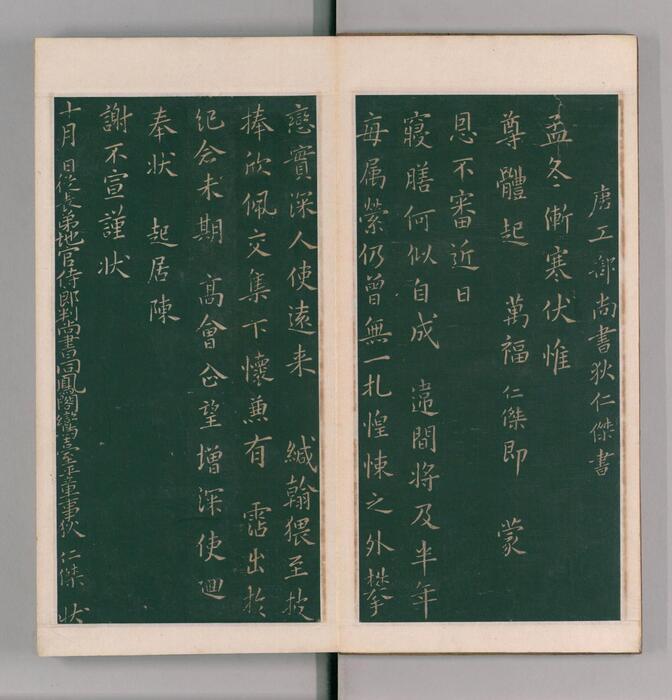 唐工部尚書狄仁傑書
孟冬漸寒伏惟
尊體起 萬福仁傑即 蒙
恩不審近日
寢膳何似自成 違間將及半年
每属縈仍曾無一札惶悚之外攀
戀實深人使遠来 緘翰猥至披
捧欣佩交集下懷兼有 霑出於
紀念未期 高會企望增深使迴
奉状 起居陳
謝不宣謹状
十月 日從表弟地官侍郎判尚書同鳳閣鸞臺平章事狄 仁傑 状